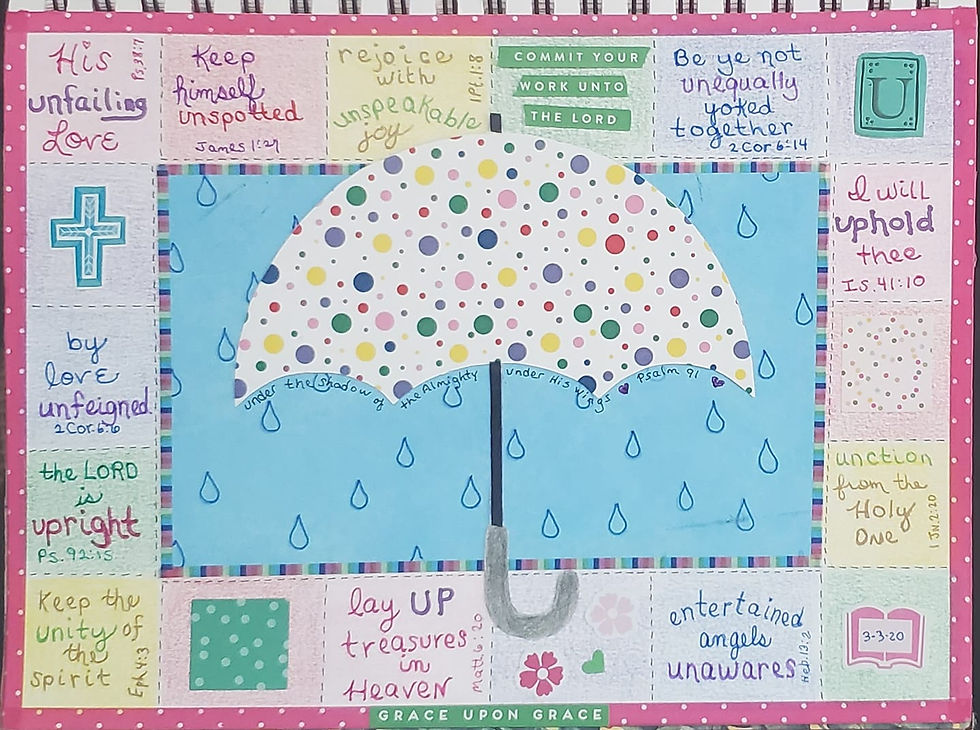 His
unfailing
Love
Ps. 38:7
Keep
himself
unspotted
James 1:27
rejoice
with
unspeakable
joy
1 Pt. 1:8
COMMIT YOUR
WORK UNTO
THE LORD
Be ye not
unequally
yoked
together
2 Cor 6:14
U
I will
uphold
thee
Is. 41:10
by
love
unfeigned
2 Cor. 6:6
under the shadow of
the Almighty
under His wings
Psalm 91
the LORD
is
upright
Ps. 92:15
unction
from the
Holy
One
1 Jn 2:20
Keep the
unity of
the
spirit
Eph 4:3
lay UP
treasures
in
Heaven
Matt. 6:20
entertained
angels
unawares
Heb. 13:2
3-3-20
GRACE UPON GRACE